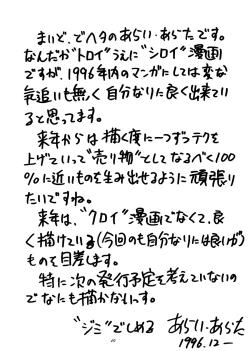 まいど、でヘタのあらい・あらたです。
なんだか“トロイ”うえに“シロイ”漫画
ですが、1996年内のマンガにしては変な
気追いも無く自分なりに良く出来てい
ると思ってます。
来年からは描く度に一つずつテクを
上げていって“売り物”としてなるべく100
%に近いものを生み出せるように頑張り
たいですね。
来年は、“クロイ”漫画でなくて、良
く描けている(今回のも自分なりには良いが)
ものを目差します。
特に次の発行予定を考えていないの
でなにも描かないっす。
“ジミ”でしめる あらい・あらた
1996.12−